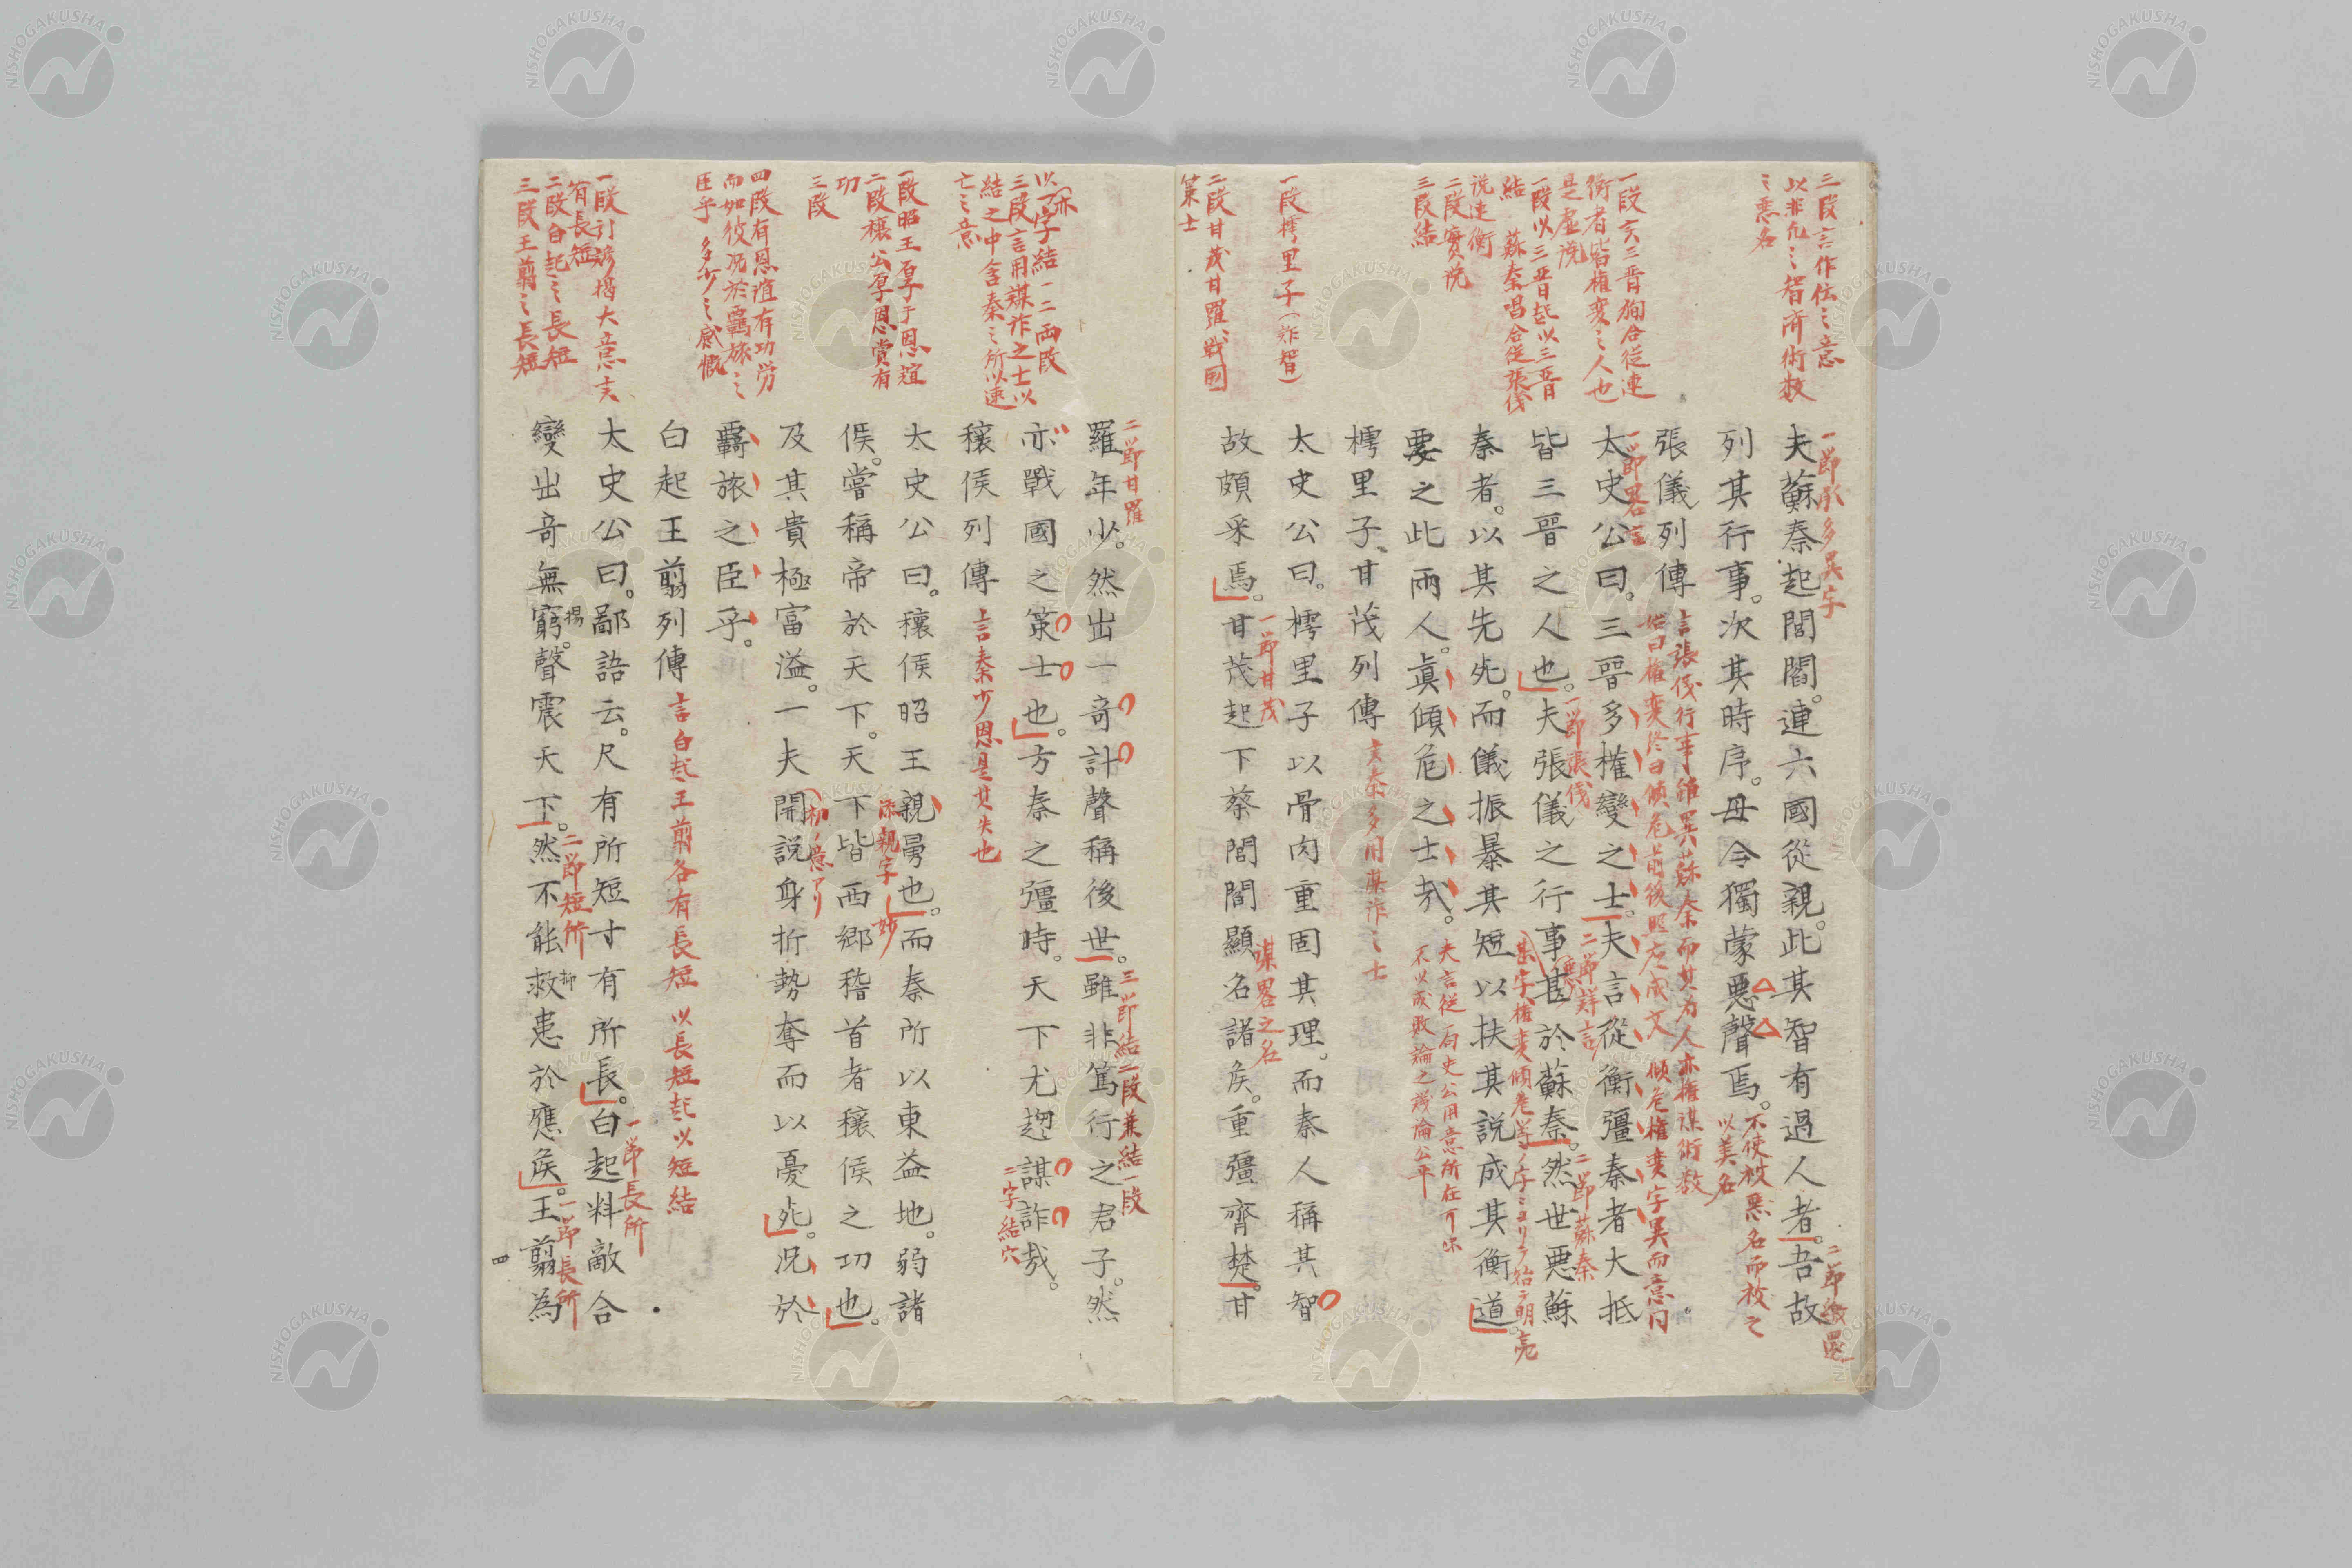 三段言作伝之意
以非凡之智済術数
之悪名
一段言三晋狥合従連
衡者皆権変之人也
是虚説
一段以三晋起以三晋
結 蘇秦唱合従張儀
説連衡
二段実説
三段結
一段樗里子(詐智)
二段甘茂甘羅、戦国
策士
一節承多異字
夫蘇秦起閭閻。連六國從親。此其智有過人者。吾故
二節
列其行事。次其時序。毋令獨蒙悪聲焉。
不使被悪名而被之
以美名
張儀列傳
言張儀行事雖異蘇秦而其為人亦権謀術数
始曰権変終曰傾危前後照応成文 傾危権変字異而意同
一節畧言
太史公曰。三晉多權變之士。夫言從衡彊秦者大抵
二節詳言
皆三晉之人也。夫張儀之行事甚於蘇秦。然世悪蘇
一節張儀
二節蘇秦
秦者。以其先死。而儀振暴其短以扶其説成其衡道。
要之此兩人。眞傾危之士哉。
不以成敗論之議論公平
樗里子、甘茂列傳
言秦多用謀詐之士
太史公曰。樗里子以骨肉重固其理。而秦人稱其智
故頗采焉。甘茂起下蔡閭閻顯名諸侯。重彊齊楚。甘
一節甘茂
謀畧之名
以亦字結一二両段
三段言用謀詐之士以
結之中含秦之所以速
亡之意
一段昭王厚于恩誼
二段穰公厚恩賞有
功
三段
四段有恩誼有功労
而如彼况於羈旅之
臣乎多少之感慨
一段引諺掲大意言
有長短
二段白起之長短
三段王翦之長短
二節甘羅
羅年少。然出一奇計聲稱後世。雖非篤行之君子。然
三節結二段兼結一段
亦戰國之策士也。方秦之彊時。天下尤趨謀詐哉。
二字結穴
穰侯列傳
言秦少恩是其失也
太史公曰。穰侯昭王親舅也。而秦所以東益地。弱諸
添親字妙
侯。嘗稱帝於天下。天下皆西郷稽首者穰侯之功也。
及其貴極富溢。一夫開説身折勢奪而以憂死。况於
羇旅之臣乎。
白起王翦列傳
言白起王翦各有長短 以長短起以短結
太史公曰。鄙語云。尺有所短寸有所長。白起料敵合
一節長所
變出奇無窮。聲震天下。然不能救患於應侯。王翦為
揚
抑
二節短所
一節長所
四